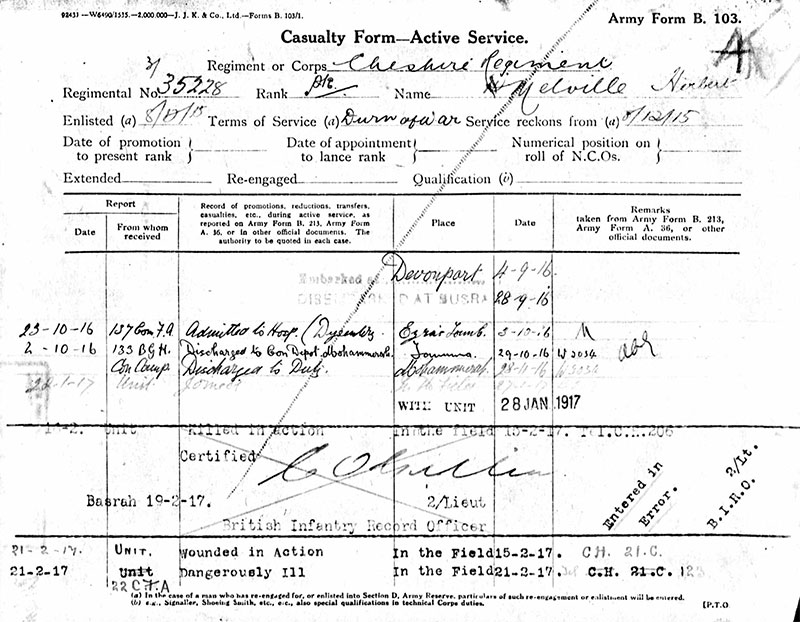 92431—W6490/1535.—2,000.000—J. J. K. & Co., Ltd.—Forms B. 103/1.
Army Form B. 103.
Casualty Form—Active Service.
A
Regiment or Corps Cheshire Regiment
Regimental No. 35228 Rank Pte Name Melville Herbert
Enlisted (a) 8/12/15 Terms of Service (a) Durn of War Service reckons from (a) 8/12/15
Date of promotion to present rank
Date of appointment to lance rank
Numerical position on roll of N.C.Os.
Extended Re-engaged Qualification (b)
Report
Date
From whom received
Record of promotions, reductions, transfers, casualties, etc., during active service, as reported on Army Form B. 213, Army Form A. 36, or in other official documents. The authority to be quoted in each case.
Place
Date
Remarks taken from Army Form B. 213, Army Form A. 36, or other official documents.
Embarked at Devonport 4-9-16
DISEMBARKED AT BUSRA 28-9-16
23-10-16 137 Com F.A Admitted to Hosp. (Dysentry Ezra's Tomb. 3-10-16
133 B.G.H. Discharged to Con Depot Mohammerah. 29-10-16
Con Camp Discharged to Duty Mohammerah. 28-11-16
Unit Joined
WITH UNIT 28 JAN 1917
Unit Killed in action In the field 15-2-17.
Certified
Basrah 19-2-17. 2/Lieut
British Infantry Record Officer
Entered in Error. 2/Lt. B.I.R.O.
21-2-17. UNIT. Wounded in Action In the Field 15-2-17. CH. 21.C.
21-2-17 Unit Dangerously Ill In the Field 21-2-17. C.H. 21.C. 123
22 C.F.A
(a) In the case of a man who has re-engaged for, or enlisted into Section D, Army Reserve, particulars of such re-engagement or enlistment will be entered.
(b) e.g., Signaller, Shoeing Smith, etc., etc., also special qualifications in technical Corps duties.
[P.T.O